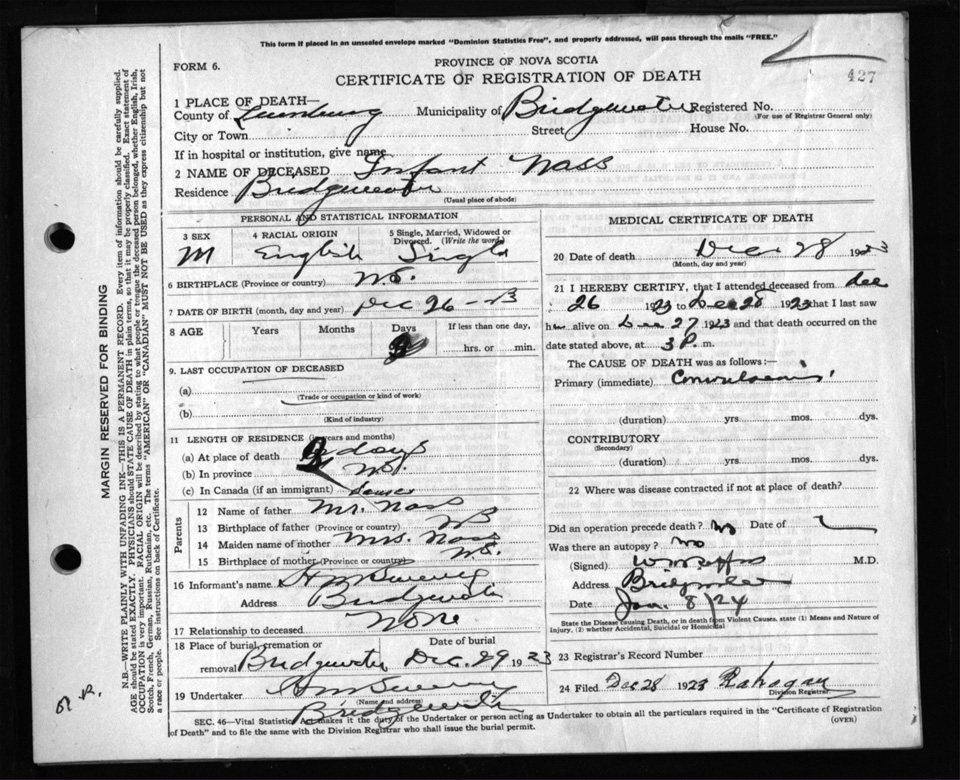 This form if placed in an unsealed envelope marked "Dominion Statistics Free", and properly addressed, will pass through the mails "FREE."
FORM 6.
PROVINCE OF NOVA SCOTIA
CERTIFICATE OF REGISTRATION OF DEATH
427
1 PLACE OF DEATH—
County of Lunenburg Municipality of Bridgewater Registered No.
(For use of Registrar General only)
City or Town Street House No.
If in hospital or institution, give name
2 NAME OF DECEASED Infant Nass
Residence Bridgewater
(Usual place of abode)
PERSONAL AND STATISTICAL INFORMATION
3 SEX 4 RACIAL ORIGIN 5 Single, Married, Widowed or Divorced. (Write the word)
M English Single
6 BIRTHPLACE (Province or country) N.S.
7 DATE OF BIRTH (month, day and year) Dec 26-
8 AGE Years Months Days If less than one day,
hrs. or min.
9. LAST OCCUPATION OF DECEASED
(a)
(Trade or occupation or kind of work)
(b)
(Kind of industry)
11 LENGTH OF RESIDENCE (in years and months)
(a) At place of death days
(b) In province N.S.
(c) In Canada (if an immigrant)
Parents
12 Name of father Mr. Nass
13 Birthplace of father (Province or country)
14 Maiden name of mother Mrs. Nass
15 Birthplace of mother (Province or country) N.S.
16 Informant's name
Address Bridgewater
17 Relationship to deceased None
18 Place of burial, cremation or removal Bridgewater Date of burial Dec. 29 1923
19 Undertaker
(Name and address)
Bridgewater
MEDICAL CERTIFICATE OF DEATH
20 Date of death Dec 28 1923
(Month, day and year)
21 I HEREBY CERTIFY, that I attended deceased from Dec
26 1923 to Dec 28 1923 that I last saw
him alive on Dec 27 1923 and that death occurred on
date stated above, at 3 P. m.
The CAUSE OF DEATH was as follows:—
Primary (immediate) Convulsions
(duration) yrs mos. dys.
CONTRIBUTORY
(Secondary)
(duration) yrs. mos. dys.
22 Where was disease contracted if not at place of death?
Did an operation precede death? No Date of
Was there an autopsy? No
(Signed) M.D.
Address Bridgewater
Date Jan. 8/24
State the Disease causing Death, or in death from Violent Causes, state (1) Means and Nature of Injury, (2) whether Accidental, Suicidal or Homicidal
23 Registrar's Record Number
24 Filed Dec 28 1923
Division Registrar
SEC. 46—Vital Statistics Act makes it the duty of the Undertaker or person acting as Undertaker to obtain all the particulars required in the "Certificate of Registration
of Death" and to file the same with the Division Registrar who shall issue the burial permit.
(OVER)
MARGIN RESERVED FOR BINDING
N.B.—WRITE PLAINLY WITH UNFADING INK—THIS IS A PERMANENT RECORD. Every item of information should be carefully supplied.
AGE should be stated EXACTLY. PHYSICIANS should STATE CAUSE OF DEATH in plain terms, so that it may be properly classified. Exact statement of
OCCUPATION is very important. RACIAL ORIGIN will be described by stating to what people or tongue the deceased person belonged, whether English, Irish,
Scotch, French, German, Russian, Ruthenian, etc. The terms "AMERICAN" OR "CANADIAN" MUST NOT BE USED as they express citizenship but not
a race or people. See instructions on back of Certificate.